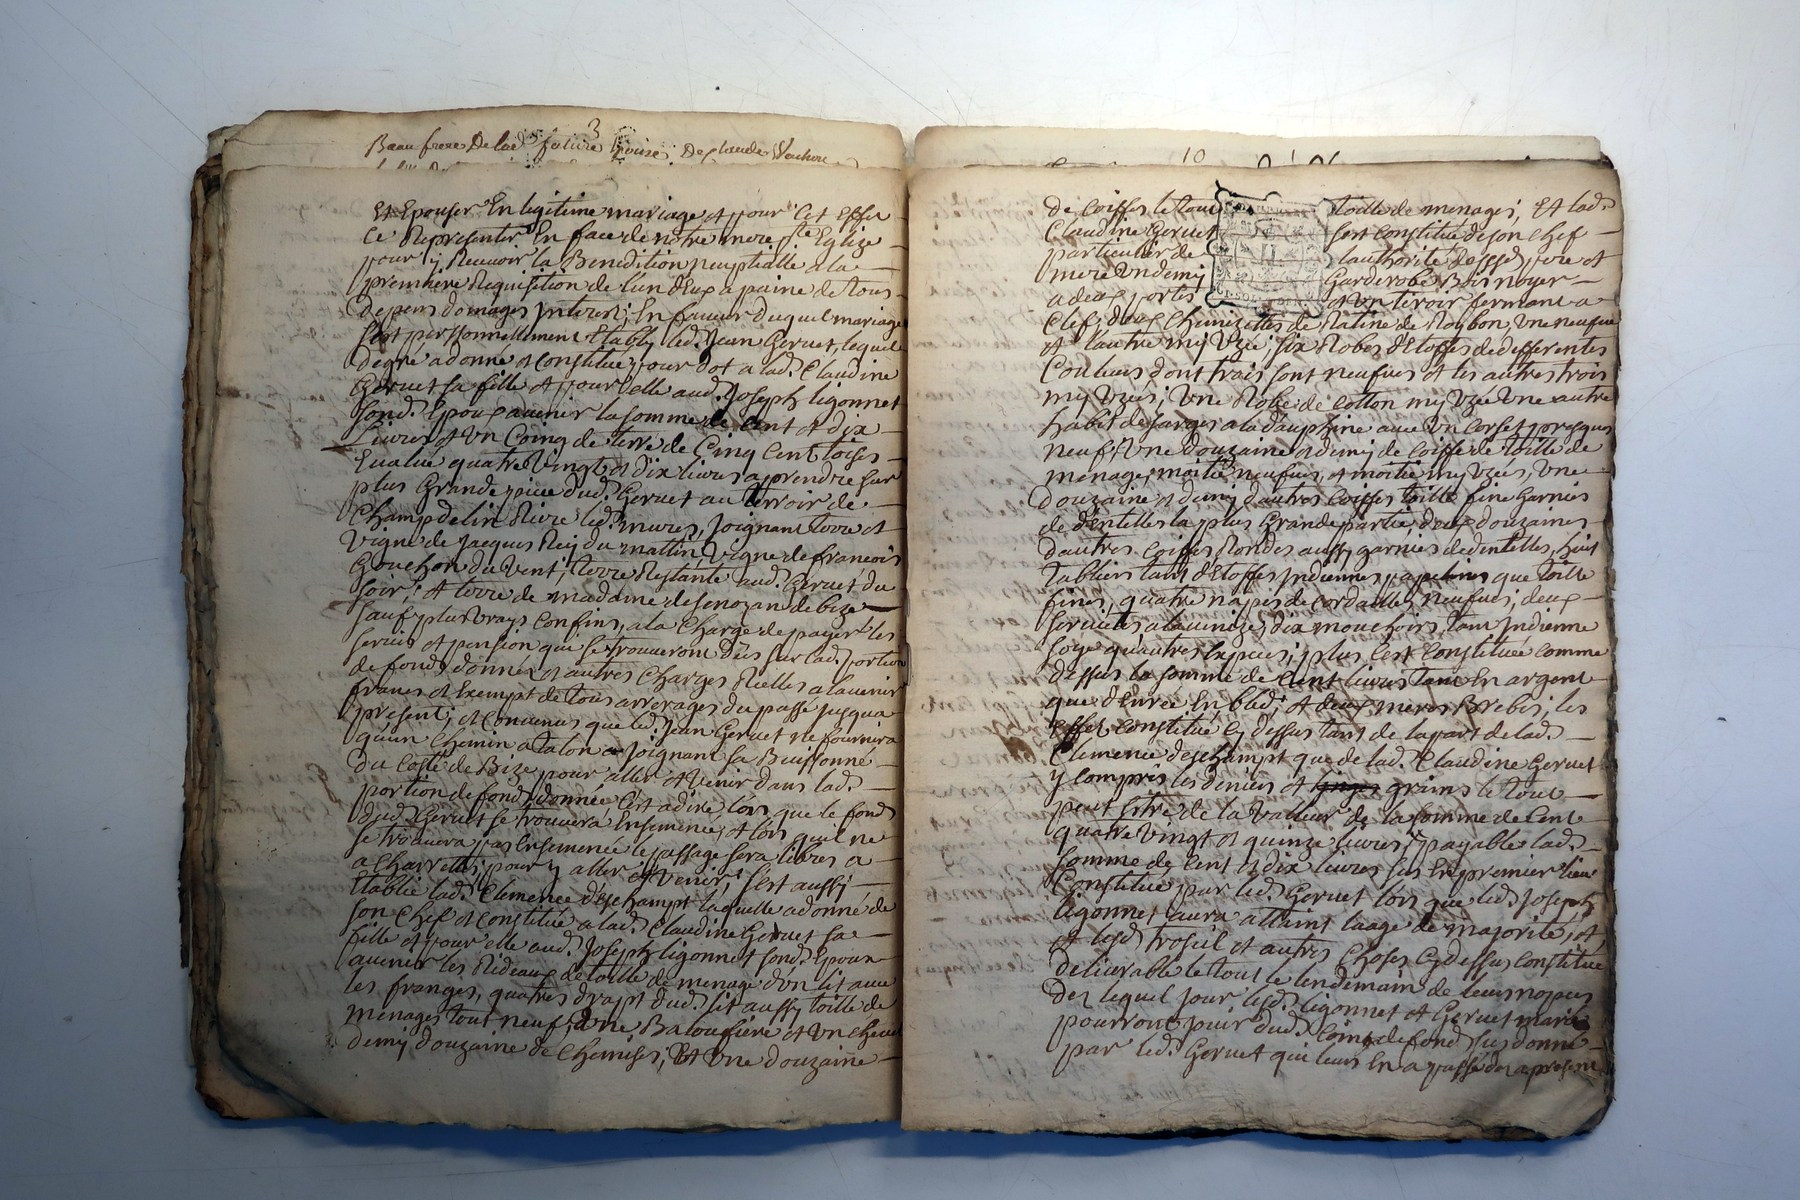 3
Beau frere De lad. future Epouse, De Claude Vachon
Et Epouser En legitime mariage et pour Cet Effet
Ce Representer En face de notre mere ste Eglize
pour y Recevoir la Benedition neuptialle a la
premiere Requisition de l'un d'Eux a paine de tous
depens domages Interest; En faveur duquel mariage
s'est personnellement Etably led. Jean Gervet, lequel
degré a donné et Constitué pour dot a lad. Claudine
Gervet sa fille et pour elle aud. Joseph ligonnet
sond. Epoux avenir la somme de Cent et dix
Livres et Un Coing de terre de Cinq Cent toises
Evalué quatre Vingt et dix livres a prendre sur
plus Grande piece dud. Gervet au terroir de
Champdelin Riere led. mures, Joignant terre et
Vigne de Jacques Rey du mattin, Vigne de francois
Gouchon du Vent, terre Restante aud. Gervet du
soir, et terre de madame de senozan de bize
sauf plus Vrays Confins, a la Charge de payer les
servis et pension qui se trouveront dûs sur lad. portion
de fond donné et autres Charges Rielles a lavenir
francs et Exempt de tous arrerages du passé jusqua
present; et Convenus que led. Jean Gervet ne fournira
qu'un Chemin a talon Joignant sa Buissonne
du Costé de Bize, pour aller et Venir dans lad.
portion de fond donnée C'est a dire lors que le fond
dud. Gervet se trouvera Ensemencé, et lors quil ne
se trouvera pas Ensemencé le passage sera libres a
a Charrette, pour y aller et Venir, s'est aussy
Etablie lad. Clemence d'Eschampt laquelle a donné de
son Chef et Constitué a lad. Claudine Gervet sa
fille et pour elle aud. Joseph ligonnet sond. Epoux
avenir les Rideaux de toille de menage d'un lit avec
les franges, quatres drapt dud. lit aussy toille de
menages tout neuf, une Baloussiere et Un
demy douzaine de Chemises, Et Une douzaine
10
de Coiffes le tout toille de menages; Et lad.
Claudine Gervet s'est Constitué de son Chef
particulier de l'authorité de sesd. pere et
mere Un demy Garderobe Bois noyer
a deux portes et Un tiroir fermant a
Clef, deux Chemizettes de Ratine de Roybon, Une neufve
et l'autre my Uzé; six Robes d'Etoffes de differentes
Couleurs dont trais sont neufves et les autres trois
my Uzés; Une Robe de Cotton my Uzée Une autre
habit de sarges a la dauphine avec Un Corset presques
neuf, Une douzaine et demy de Coiffe de toille de
menage, moitié neufves, et moitié my Uzés, Une
Douzaine et demy d'autres Coiffes toille fine Garnies
de dentelles la plus Grande partie, deux douzaines
d'autres Coiffes Rondes aussy garnies de dentelles, huit
Tabliers tant d'Etoffes Indiennes papelines que toille
fines, quatre napes de Cordailles neufves, deux
serviettes a la venize, dix mouchoirs tant Indienne
soye qu'autres Especes; plus s'est Constituée comme
dessus la somme de Cent livres tant En argent
que d'Enrée En bled, et deux meres Brebis, les
Effet Constitué Cy dessus tant de la part de lad.
Clemence deschampt que de lad. Claudine Gervet
y Compris les deniers et grains le tout
peut Estre de la Valleur de la somme de Cent
quatre Vingt et quinze livres; payable lad.
somme de Cent et dix livres sus En premier lieu
Constitué par led. Gervet lors que led. Joseph
ligonnet aura attaint l'aage de majorité, et
et lesd. trosüel et autres Choses Cy dessus Constitué
deliverable le tout le lendemain de leurs nopces
des lequel Jour lesd. ligonnet et Gervet mariés
pourront jouir dud. Coing de fond sus donné
par led. Gervet qui leurs En a passé des a present